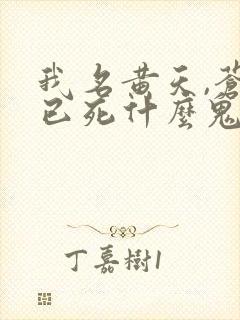 我名黄天,蒼
已死什麼鬼
丁嘉樹1